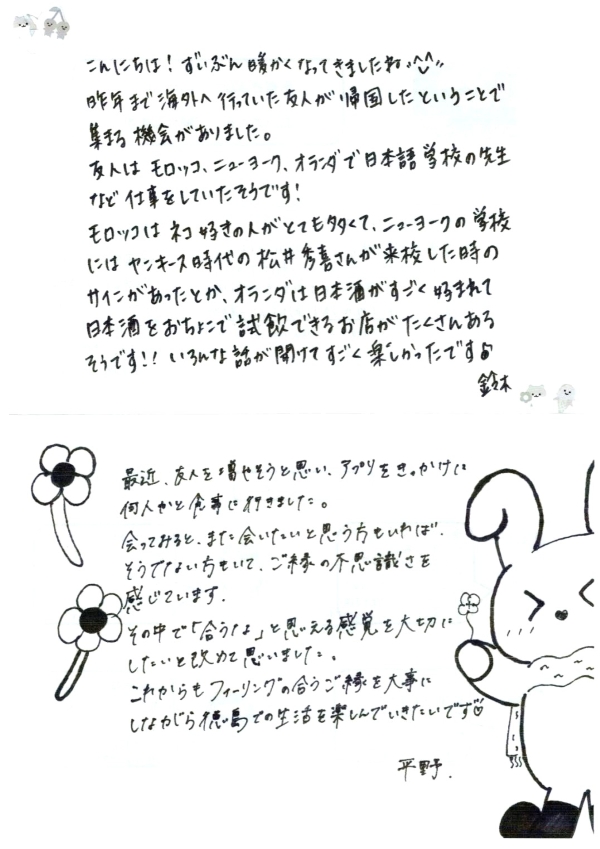 こんにちは！ずいぶん暖かくなってきましたね^^
昨年まで海外へ行っていた友人が帰国したということで
集まる機会がありました。
友人はモロッコ、ニューヨーク、オランダで日本語学校の先生
など仕事をしていたそうです！
モロッコはネコ好きの人がとても多くて、ニューヨークの学校
にはヤンキース時代の松井秀喜さんが来校した時の
サインがあったとか、オランダは日本酒がすごく好まれて
日本酒をおちょこで試飲できるお店がたくさんある
そうです!!いろんな話が聞けてすごく楽しかったです♪
鈴木
最近、友人を増やそうと思い、アプリをきっかけに
何人かと食事に行きました。
会ってみると、また会いたいと思う方もいれば、
そうでない方もいて、ご縁の不思議さを
感じています。
その中で「合うな」と思える感覚を大切に
したいと改めて思いました。
これからもフィーリングの合うご縁を大事に
しながら徳島での生活を楽しんでいきたいです♡
平野.